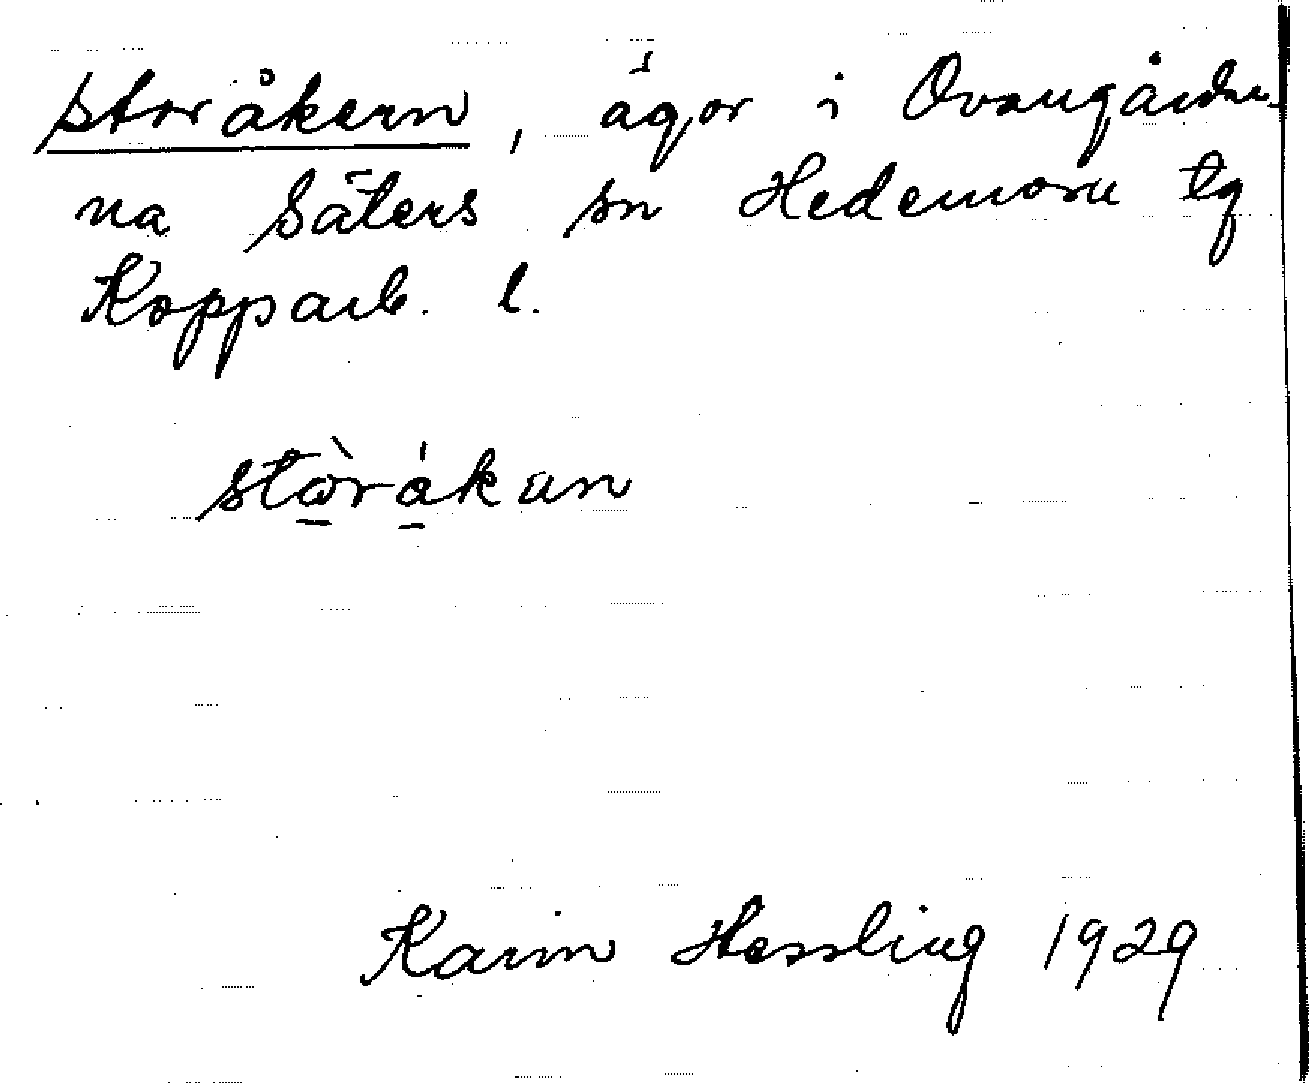 storåkern, ägor i Ovangårdar-
na Säters sn Hedemora tg
Kopparb. l.
stòrákan
Karin Hessling 1929